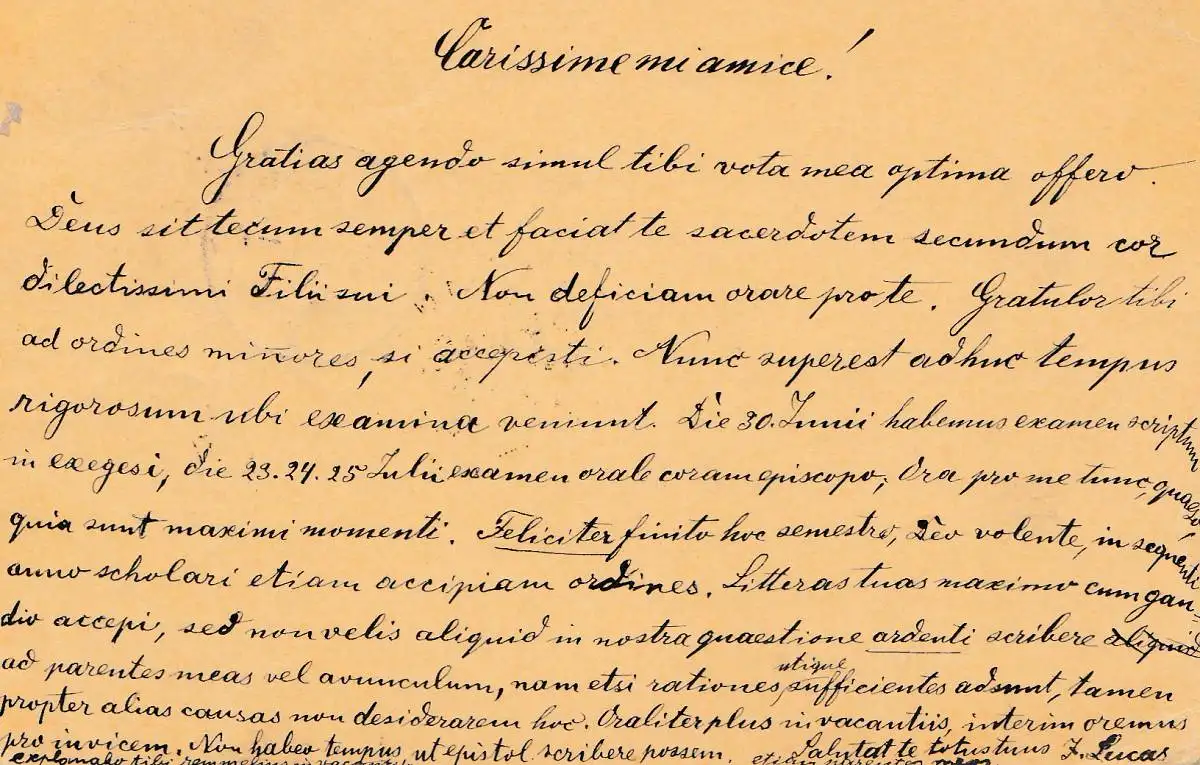 Carissime mi amice!
Gratias agendo simul tibi vota mea optima offero.
Deus sit tecum semper et faciat te sacerdotem secundum cor
dilectissimi Filii sui. Non deficiam orare pro te. Gratulor tibi
ad ordines minores, si accepisti. Nunc superest adhuc tempus
rigorosum ubi examina veniunt. Die 30. Junii habemus examen scriptum
in exegesi, die 23. 24. 25 Julii examen orale coram episcopo; Ora pro me tunc, quaeso
quia sunt maximi momenti. Feliciter finito hoc semestro, Deo volente, in sequenti
anno scholari etiam accipiam ordines. Litteras tuas maximo cum gau-
dio accepi, sed non velis aliquid in nostra quaestione ardenti scribere aliquid
ad parentes meas vel avunculum, nam etsi rationes, utique sufficientes adsunt, tamen
propter alias causas non desiderarem hoc. Oraliter plus in vacantiis, interim oremus
pro invicem. Non habeo tempus, ut epistol. scribere possem. Salutat te totus tuus J. Lucas
explanabo tibi etiam parentes meas